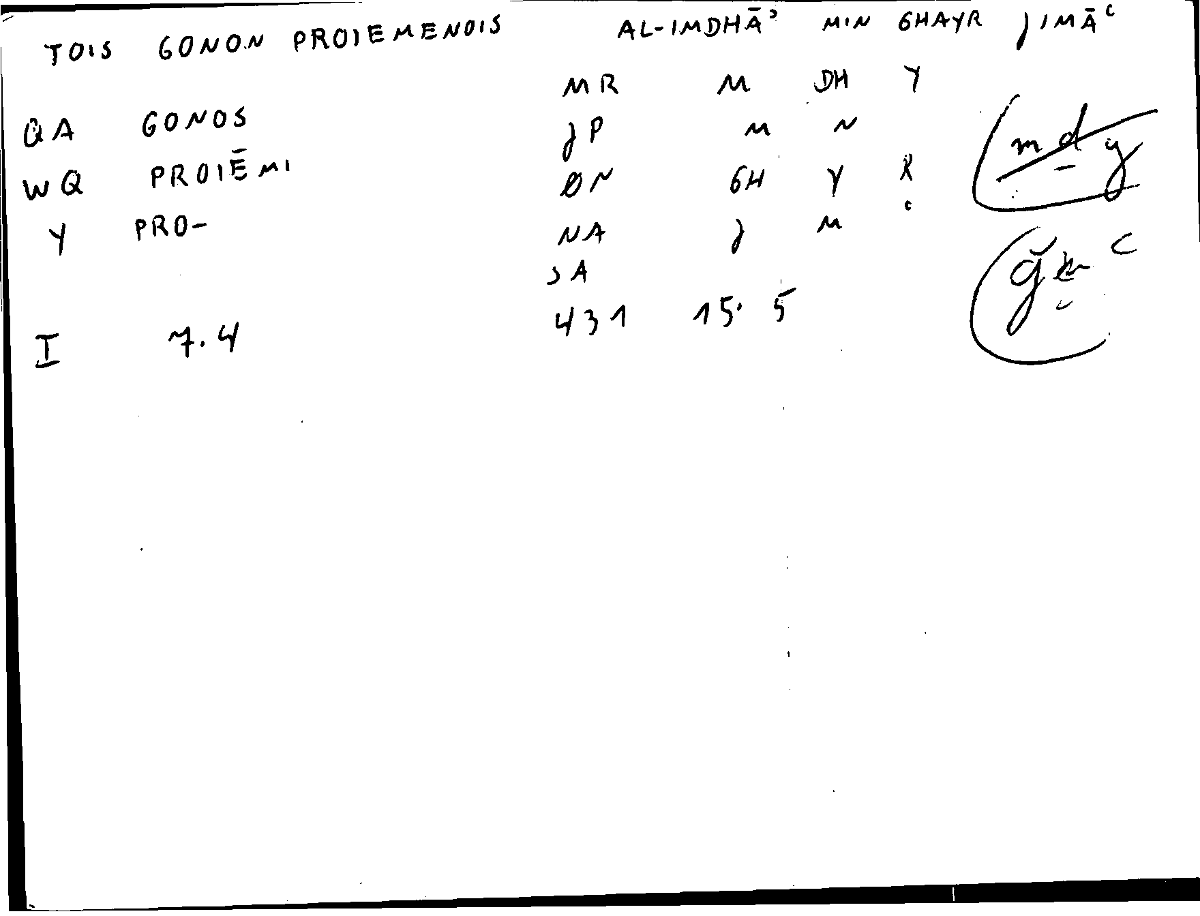 TOIS GONON PROIEMENOIS AL-IMDHĀʾ MIN GHAYR JIMĀʿ
MR M DH Y
QA GONOS JP M N
WQ PROIĒMI ØN GH Y R
Y PRO- NA J M ʿ
ʾA
I 7.4 431 15.5
m d y